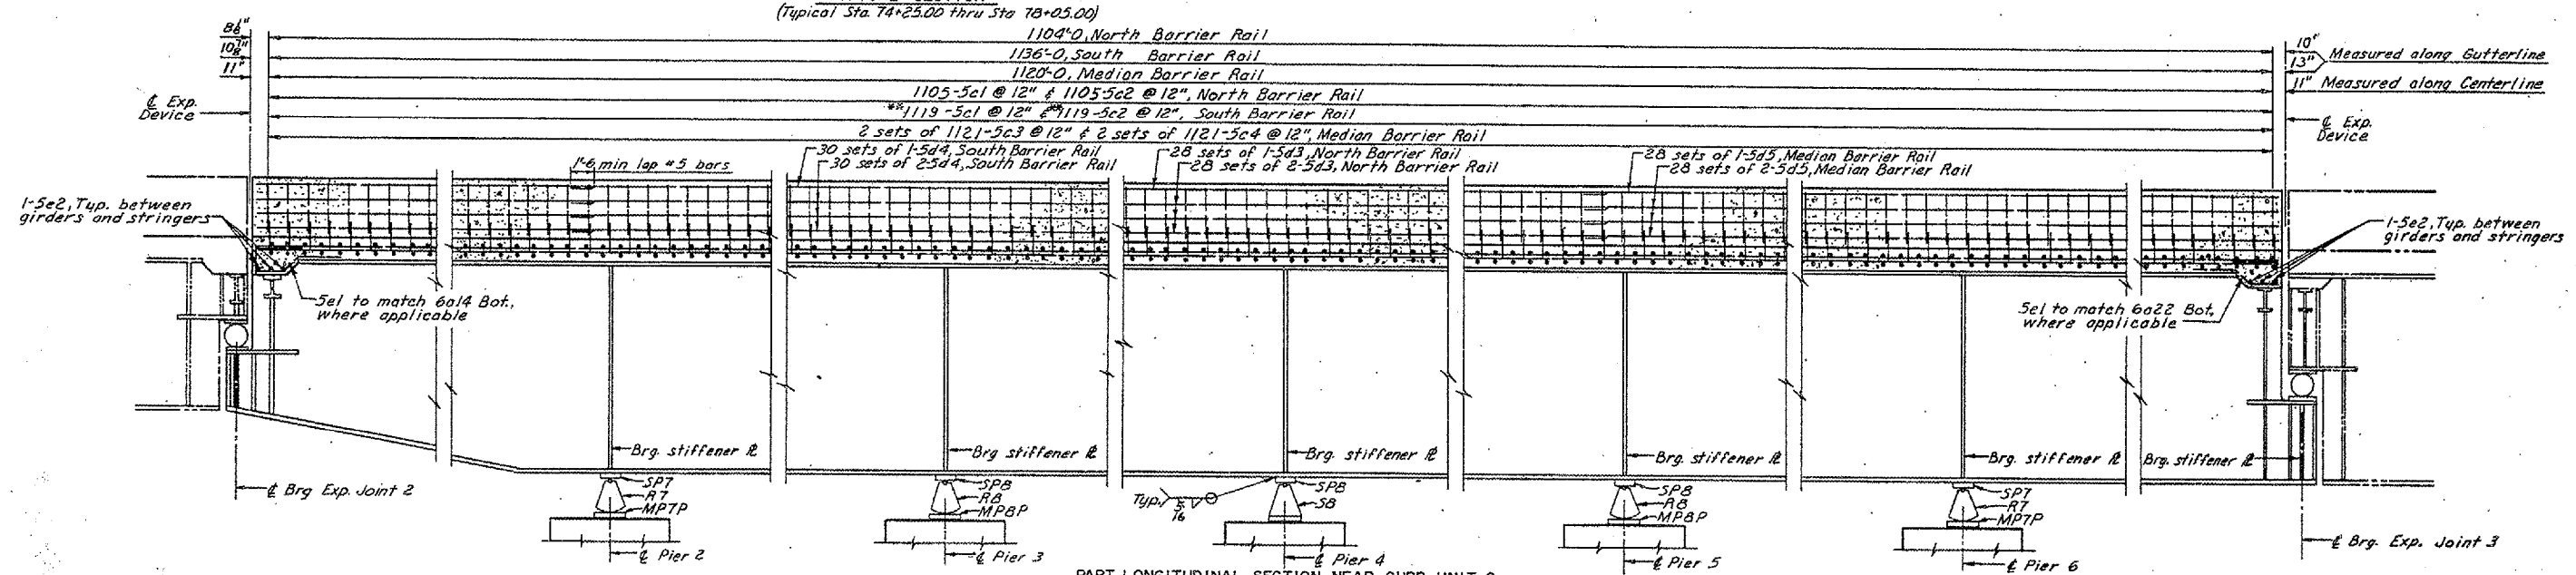 (Typical Sta. 74+25.00 thru Sta 78+05.00)
8⅛"
10⅞"
11"
1104'-0, North Barrier Rail
1136'-0, South Barrier Rail
1120'-0, Median Barrier Rail
1105-5c1 @ 12" & 1105-5c2 @ 12", North Barrier Rail
**1119-5c1 @ 12" & **1119-5c2 @ 12", South Barrier Rail
2 sets of 1121-5c3 @ 12" & 2 sets of 1121-5c4 @ 12", Median Barrier Rail
10"
13"
Measured along Gutterline
11" Measured along Centerline
℄ Exp.
Device
℄ Exp.
Device
1'-6, min lap #5 bars
30 sets of 1-5d4, South Barrier Rail
30 sets of 2-5d4, South Barrier Rail
28 sets of 1-5d3, North Barrier Rail
28 sets of 2-5d3, North Barrier Rail
28 sets of 1-5d5, Median Barrier Rail
28 sets of 2-5d5, Median Barrier Rail
1-5e2, Typ. between
girders and stringers
1-5e2, Typ. between
girders and stringers
5e1 to match 6a14 Bot.,
where applicable
5e1 to match 6a22 Bot,
where applicable
Brg. stiffener ℄
Brg. stiffener ℄
Brg. stiffener ℄
Brg. stiffener ℄
Brg. stiffener ℄
Brg. stiffener ℄
℄ Brg Exp. Joint 2
SP7
R7
MP7P
℄ Pier 2
SP8
R8
MP8P
℄ Pier 3
Typ.
5
16
SP8
S8
℄ Pier 4
SP8
R8
MP8P
℄ Pier 5
SP7
R7
MP7P
℄ Pier 6
℄ Brg. Exp. Joint 3